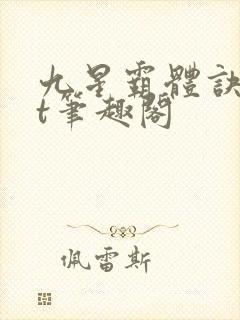 九星霸體訣
t筆趣閣
佩雷斯